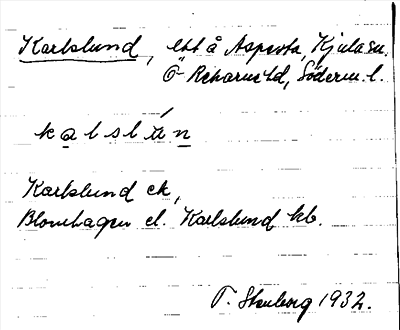 Karlslund, ltt å Aspesta, Kjula sn.
Ö-Rekarne hd, Söderm. l.
kalslán
Karlslund ek,
Blomhagen el. Karlslund kb.
T. Stenborg 1932.